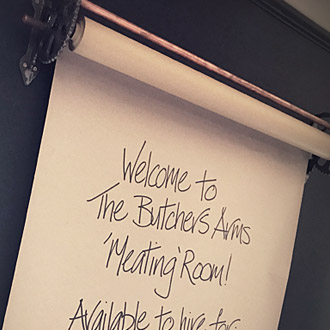 Welcome to
The Butchers Arms
'Meating' Room!
Available to hire for